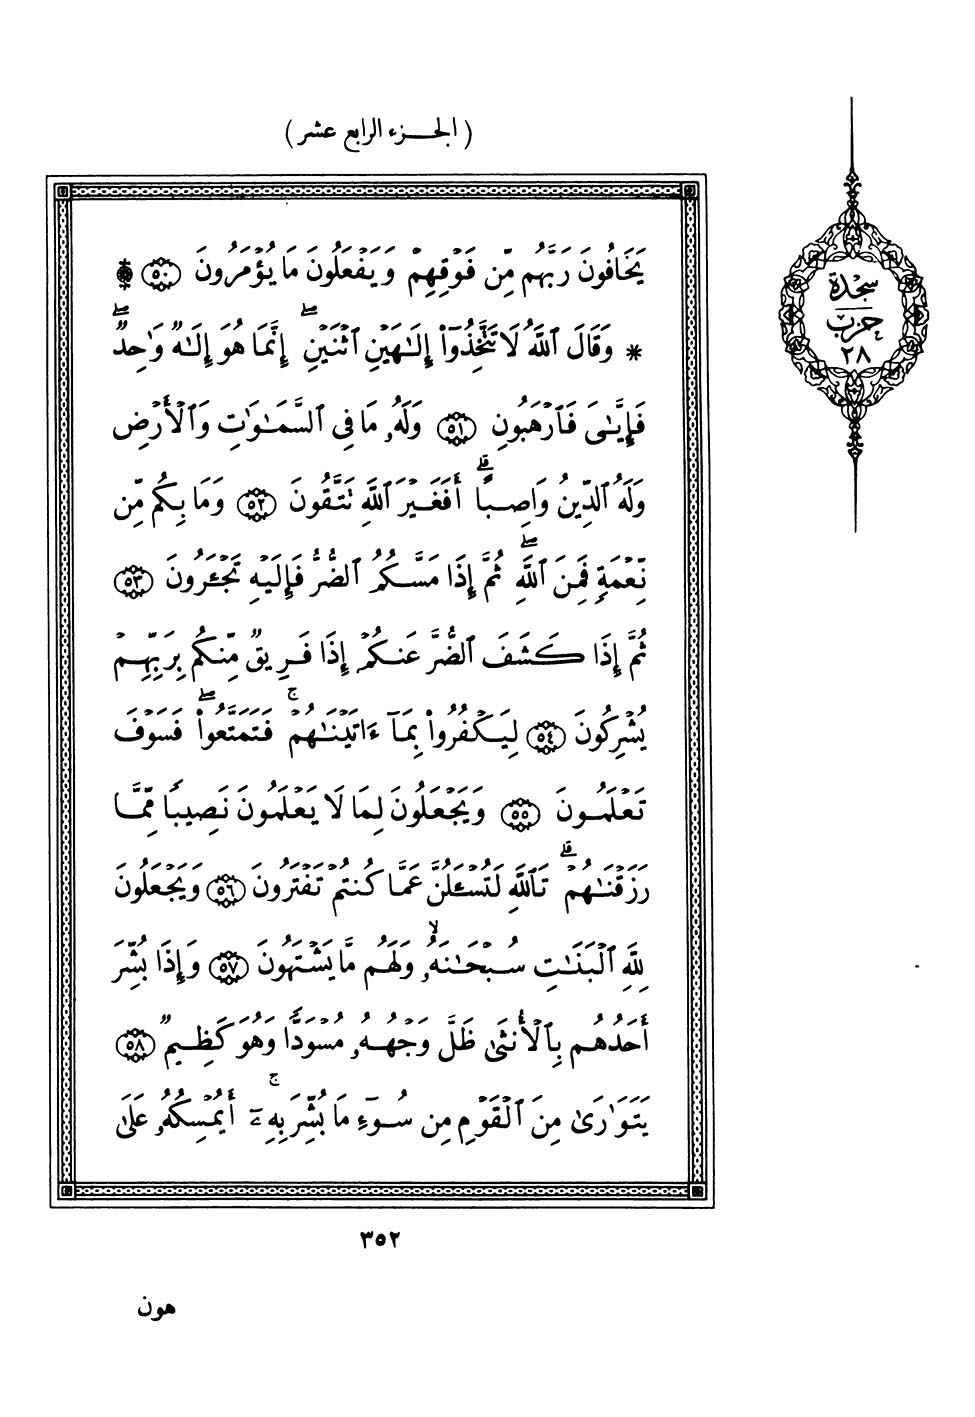 (الجزء الرابع عشر)
يَخَافُونَ رَبَّهُم مِّن فَوْقِهِمْ وَيَفْعَلُونَ مَا يُؤْمَرُونَ ۩ ٥٠
* وَقَالَ ٱللَّهُ لَا تَتَّخِذُوٓا۟ إِلَـٰهَيْنِ ٱثْنَيْنِ ۖ إِنَّمَا هُوَ إِلَـٰهٌ وَٰحِدٌ ۖ
فَإِيَّـٰىَ فَٱرْهَبُونِ ٥١ وَلَهُۥ مَا فِى ٱلسَّمَـٰوَٰتِ وَٱلْأَرْضِ
وَلَهُ ٱلدِّينُ وَاصِبًا ۚ أَفَغَيْرَ ٱللَّهِ تَتَّقُونَ ٥٢ وَمَا بِكُم مِّن
نِّعْمَةٍ فَمِنَ ٱللَّهِ ۖ ثُمَّ إِذَا مَسَّكُمُ ٱلضُّرُّ فَإِلَيْهِ تَجْـَٔرُونَ ٥٣
ثُمَّ إِذَا كَشَفَ ٱلضُّرَّ عَنكُمْ إِذَا فَرِيقٌ مِّنكُم بِرَبِّهِمْ
يُشْرِكُونَ ٥٤ لِيَكْفُرُوا۟ بِمَآ ءَاتَيْنَـٰهُمْ ۚ فَتَمَتَّعُوا۟ ۖ فَسَوْفَ
تَعْلَمُونَ ٥٥ وَيَجْعَلُونَ لِمَا لَا يَعْلَمُونَ نَصِيبًا مِّمَّا
رَزَقْنَـٰهُمْ ۗ تَٱللَّهِ لَتُسْـَٔلُنَّ عَمَّا كُنتُمْ تَفْتَرُونَ ٥٦ وَيَجْعَلُونَ
لِلَّهِ ٱلْبَنَـٰتِ سُبْحَـٰنَهُۥ ۙ وَلَهُم مَّا يَشْتَهُونَ ٥٧ وَإِذَا بُشِّرَ
أَحَدُهُم بِٱلْأُنثَىٰ ظَلَّ وَجْهُهُۥ مُسْوَدًّا وَهُوَ كَظِيمٌ ٥٨
يَتَوَٰرَىٰ مِنَ ٱلْقَوْمِ مِن سُوٓءِ مَا بُشِّرَ بِهِۦٓ ۚ أَيُمْسِكُهُۥ عَلَىٰ
سجدة
حزب
٢٨
٣٥٢
هون